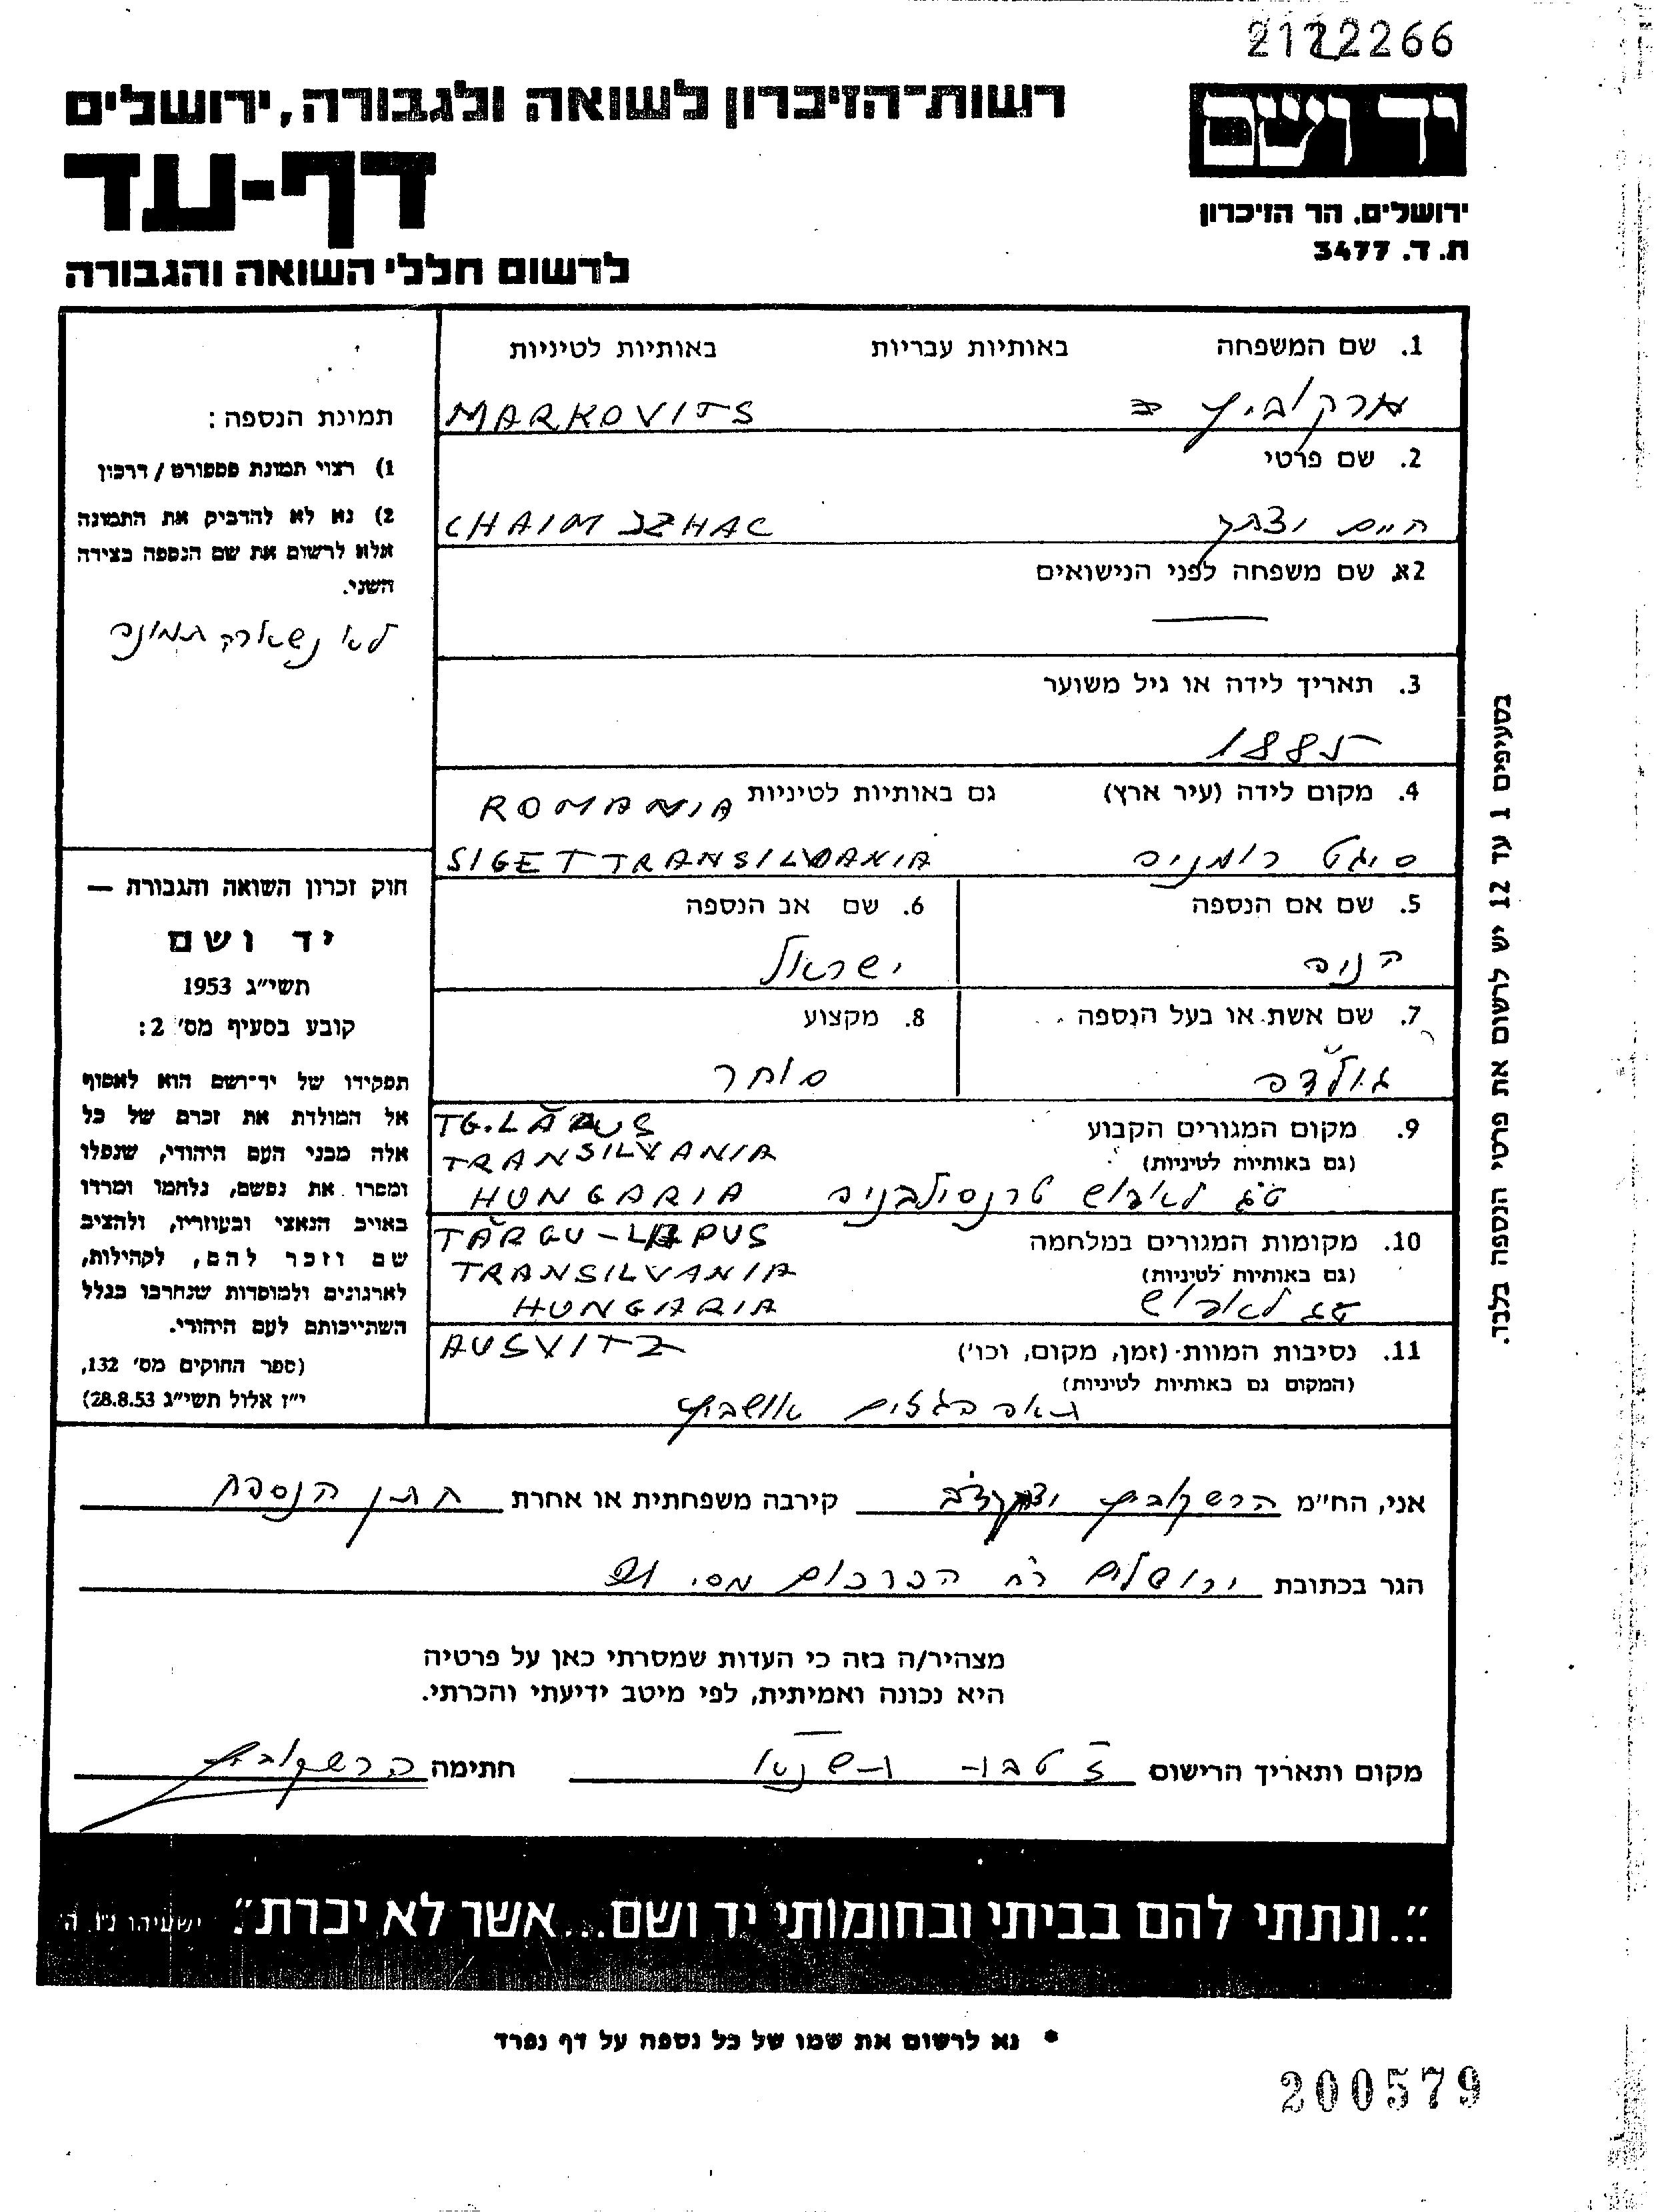 2122266
יד ושם
רשות־הזיכרון לשואה ולגבורה, ירושלים
דף-עד
לרשום חללי השואה והגבורה
ירושלים, הר הזיכרון
ת.ד. 3477
1. שם המשפחה באותיות עבריות באותיות לטיניות
מרקוביץ MARKOVITS
2. שם פרטי
חיים יצחק CHAIM IZHAC
2א. שם משפחה לפני הנישואים
3. תאריך לידה או גיל משוער
1885
4. מקום לידה (עיר ארץ) גם באותיות לטיניות ROMANIA
סיגט רומניה SIGET TRANSILVANIA
5. שם אם הנספה
הניה
6. שם אב הנספה
ישראל
7. שם אשת או בעל הנספה
גולדה
8. מקצוע
סוחר
9. מקום המגורים הקבוע TG.LĂPUS
(גם באותיות לטיניות) TRANSILVANIA
טג לאפוש טרנסילבניה HUNGARIA
10. מקומות המגורים במלחמה TĂRGU-LĂPUS
(גם באותיות לטיניות) TRANSILVANIA
טג לאפוש HUNGARIA
11. נסיבות המוות (זמן, מקום, וכו') AUSVITZ
(המקום גם באותיות לטיניות)
בגזים אושביץ
תמונת הנספה:
1) רצוי תמונת פספורט / דרכון
2) נא לא להדביק את התמונה
אלא לרשום את שם הנספה בצידה
השני.
לא נשארה תמונה
חוק זכרון השואה והגבורה —
יד ושם
תשי"ג 1953
קובע בסעיף מס' 2:
תפקידו של יד־ושם הוא לאסוף
אל המולדת את זכרם של כל
אלה מבני העם היהודי, שנפלו
ומסרו את נפשם, נלחמו ומרדו
באויב הנאצי ובעוזריו, ולהציב
שם וזכר להם, לקהילות,
לארגונים ולמוסדות שנחרבו בגלל
השתייכותם לעם היהודי.
(ספר החוקים מס' 132,
י"ז אלול תשי"ג 28.8.53)
בסעיפים 1 עד 12 יש לרשום את פרטי הנספה בלבד.
אני, הח"מ הרשקוביץ קירבה משפחתית או אחרת חתן הנספה
הגר בכתובת ירושלים רח הכרכום מס.
מצהיר/ה בזה כי העדות שמסרתי כאן על פרטיה
היא נכונה ואמיתית, לפי מיטב ידיעתי והכרתי.
מקום ותאריך הרישום טבת תשנא חתימה הרשקוביץ
"...ונתתי להם בביתי ובחומותי יד ושם...אשר לא יכרת". ישעיהו נ"ו ה'
* נא לרשום את שמו של כל נספה על דף נפרד
200579